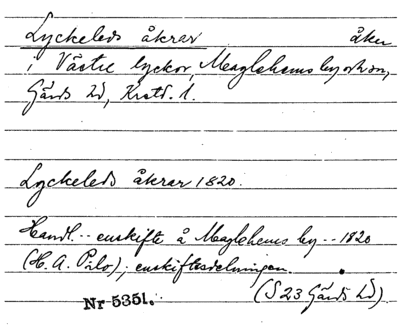 Lyckeleds åkrar åker
i Västre lyckor, Maglehems by o. sn,
Gärds hd, Krstd. l.
Lyckeleds åkrar 1820.
Handl. -- enskifte å Maglehems by -- 1820
(H. A. Pilo); enskiftesdelningen.
(S 23 Gärds hd)
Nr 5351.